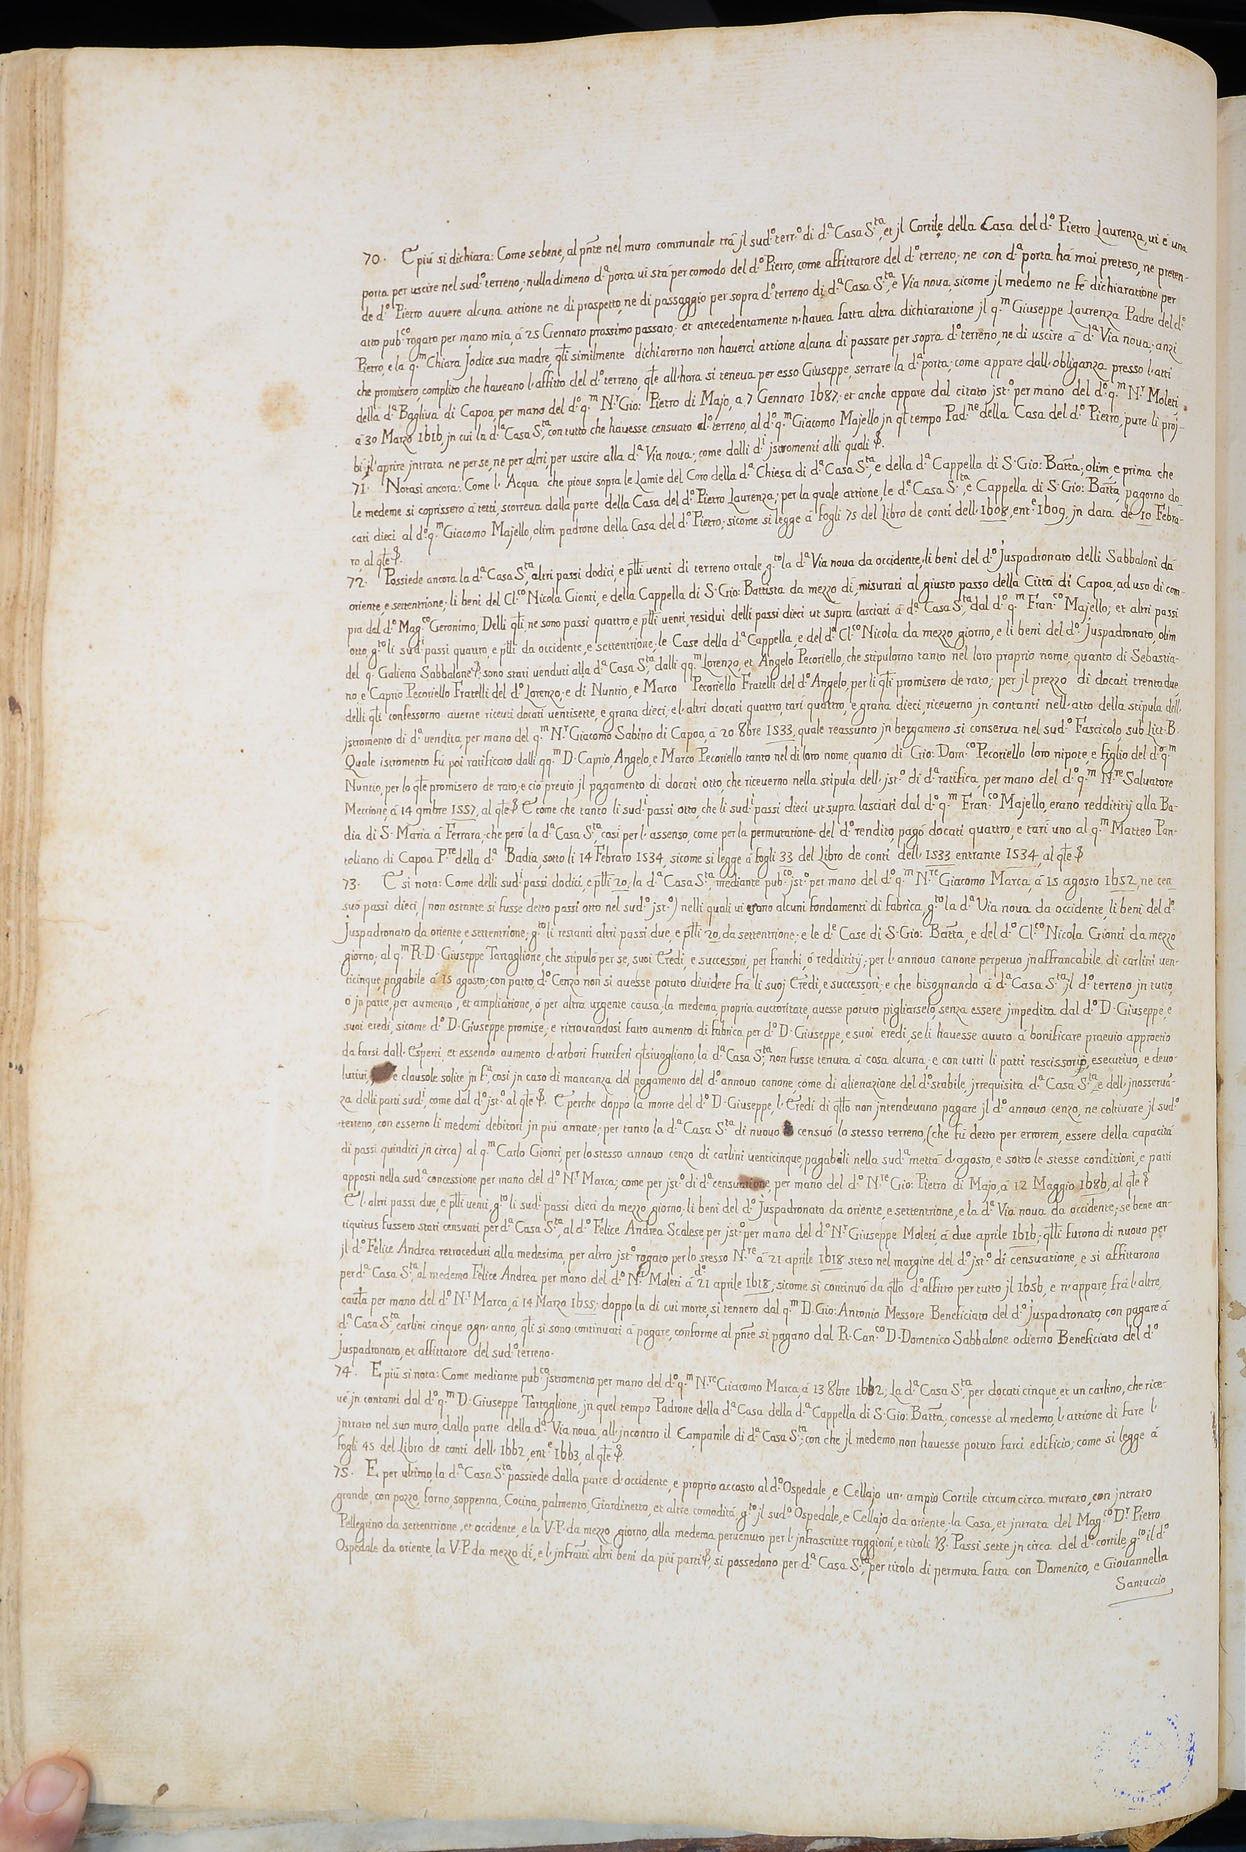 70. E più si dichiara: Come sebene, al pnte nel muro communale trà jl sud.o terr.o di d.a Casa S.ta, et jl Cortile della Casa del d.o Pietro Laurenza, ui è una
porta per uscire nel sud.o terreno; nulladimeno d.a porta ui stà per comodo del d.o Pietro, come affittatore del d.o terreno; ne con d.a porta hà mai preteso, ne preten-
de d.o Pietro auuere alcuna attione ne di prospetto, ne di passaggio per sopra d.o terreno di d.a Casa S.ta, e Via noua, sicome jl medemo ne fè dichiaratione per
atto pub.co rogato per mano mia, à 25 Gennaro prossimo passato; et antecedentemente n'hauea fatta altra dichiaratione jl q.m Giuseppe Laurenza Padre del d.o
Pietro, e la q.m Chiara Jodice sua madre, qli similmente dichiarorno non hauerci attione alcuna di passare per sopra d.o terreno, ne di uscire à d.a Via noua; anzi
che promisero, complito che haueano l'affitto del d.o terreno, qle all'hora si teneua per esso Giuseppe, serrare la d.a porta; come appare dall'obliganza presso l'atti
della d.a Bagliua di Capoa, per mano del d.o q.m N.r Gio: Pietro di Majo, a 7 Gennaro 1687; et anche appare dal citato jst.o per mano del d.o q.m N.r Moleti,
a 30 Marzo 1616, jn cui la d.a Casa S.ta, con tutto che hauesse censuato d.o terreno, al d.o q.m Giacomo Majello jn ql tempo Pad.ne della Casa del d.o Pietro, pure li proj-
bì jl aprire jntrata ne per se, ne per altri, per uscire alla d.a Via noua; come dalli d.i jstromenti alli quali &.
71. Notasi ancora: Come l'Acqua che pioue sopra le Lamie del Coro della d.a Chiesa di d.a Casa S.ta, e della d.a Cappella di S. Gio: Batta; olim e prima che
le medeme si coprissero à tetti, scorreua dalla parte della Casa del d.o Pietro Laurenza; per la quale attione, le d.e Casa S.ta, e Cappella di S. Gio: Batta, pagorno do-
cati dieci al d.o q.m Giacomo Majello, olim padrone della Casa del d.o Pietro; sicome si legge à fogli 75 del Libro de conti dell'1608, ent.e 1609, jn data de 10 Febra-
ro, al qle &.
72. Possiede ancora la d.a Casa S.ta, altri passi dodici, e plli uenti di terreno ortale g.to la d.a Via noua da occidente, li beni del d.o Juspadronato delli Sabbaloni da
oriente, e settentrione; li beni del Cl.co Nicola Gionti, e della Cappella di S. Gio: Battista da mezzo dì, misurati al giusto passo della Città di Capoa, ad uso di com-
pra del d.o Mag.co Geronimo, Delli qli, ne sono passi quattro, e plli uenti, residui delli passi dieci ut supra lasciati à d.a Casa S.ta, dal d.o q.m Fran.co Majello; et altri passi
otto, g.to li sud.i passi quattro, e plli da occidente, e settentrione; le Case della d.a Cappella, e del d.o Cl.co Nicola da mezzo giorno, e li beni del d.o Juspadronato, olim
del q.m Galieno Sabbalone &; sono stati uenduti alla d.a Casa S.ta, dalli qq.m Lorenzo, et Angelo Pecoriello, che stipulorno tanto nel loro proprio nome, quanto di Sebastia-
no, e Caprio Pecoriello Fratelli del d.o Lorenzo; e di Nuntio, e Marco Pecoriello Fratelli del d.o Angelo, per li qli promisero de rato; per jl prezzo di docati trenta due
delli qli confessorno auerne riceuti docati uentisette, e grana dieci, e l'altri docati quattro, tarì quattro, e grana dieci, riceuerno jn contanti nell'atto della stipula dell'
jstromento di d.a uendita, per mano del q.m N.r Giacomo Sabino di Capoa, à 20 8bre 1533, quale reassunto jn bergameno si conserua nel sud.o Fascicolo sub Litt: B.
Quale istromento fù poi ratificato dalli qq.m D. Caprio, Angelo, e Marco Pecoriello tanto nel di loro nome, quanto di Gio: Dom.co Pecoriello loro nipote, e figlio del d.o q.m
Nuntio, per lo qle promisero de rato; e ciò preuio jl pagamento di docati otto, che riceuerno nella stipula dell'jst.o di d.a ratifica, per mano del d.o q.m N.re Saluatore
Merrione, à 14 9mbre 1557, al qle & E come che tanto li sud.i passi otto, che li sud.i passi dieci ut supra lasciati dal d.o q.m Fran.co Majello, erano reddititij alla Ba-
dia di S. Maria à Ferrara; che però la d.a Casa S.ta, così per l'assenso, come per la permutatione del d.o rendito, pagò docati quattro, e tarì uno al q.m Matteo Pan-
toliano di Capoa P.re della d.a Badia, sotto li 14 Febraro 1534, sicome si legge à fogli 33 del Libro de conti dell'1533 entrante 1534, al qle &
73. E si nota: Come delli sud.i passi dodici, e plli 20, la d.a Casa S.ta, mediante pub.co jst.o per mano del d.o q.m N.re Giacomo Marca, à 15 agosto 1652, ne cen-
suò passi dieci, (non ostante si fusse detto passi otto nel sud.o jst.o) nelli quali ui erano alcuni fondamenti di fabrica, g.to la d.a Via noua da occidente, li beni del d.o
Juspadronato da oriente, e settentrione; g.to li restanti altri passi due, e plli 20, da settentrione; e le d.e Case di S. Gio: Batta, e del d.o Cl.co Nicola Gionti da mezzo
giorno; al q.m R. D. Giuseppe Tartaglione, che stipulò per se, suoi Eredi, e successori, per franchi, ò reddititij; per l'annouo canone perpetuo jnaffrancabile di carlini uen-
ticinque, pagabile à 15 agosto; con patto, d.o Cenzo non si auesse potuto diuidere frà li suoj Eredi, e successori; e che bisognando à d.a Casa S.ta jl d.o terreno jn tutto,
ò jn parte, per aumento, et ampliatione, ò per altra urgente causa, la medema, propria auctoritate, auesse potuto pigliarselo, senza essere jmpedita dal d.o D. Giuseppe, e
suoi eredi, sicome d.o D. Giuseppe promise; e ritrouandosi fatto aumento di fabrica, per d.o D. Giuseppe, e suoi eredi, se li hauesse auuto à bonificare praeuio apprezzo
da farsi dall'Esperti, et essendo aumento d'arbori fruttiferi qlsiuogliano, la d.a Casa S.ta non fusse tenuta à cosa alcuna; e con tutti li patti rescissorij, esecutiuo, e deuo-
lutiui, e clausole solite jn F.a, così jn caso di mancanza del pagamento del d.o annouo canone, come di alienazione del d.o stabile, jrrequisita d.a Casa S.ta, e dell'jnosserua-
za delli patti sud.i, come dal d.o jst.o al qle &. E perche doppò la morte del d.o D. Giuseppe, l'Eredi di qllo non jntendeuano pagare jl d.o annouo cenzo, ne coltiuare jl sud.o
terreno, con esserno li medemi debitori jn più annate; per tanto la d.a Casa S.ta di nuouo censuò lo stesso terreno, (che fù detto per errorem, essere della capacità
di passi quindici jn circa) al q.m Carlo Gionti, per lo stesso annouo cenzo di carlini uenticinque, pagabili nella sud.a mettà d'agosto, e sotto le stesse conditioni, e patti
apposti nella sud.a concessione per mano del d.o N.r Marca; come per jst.o di d.a censuatione, per mano del d.o N.re Gio: Pietro di Majo, à 12 Maggio 1686, al qle &
E l'altri passi due, e plli uenti, g.to li sud.i passi dieci da mezzo giorno; li beni del d.o Juspadronato da oriente, e settentrione, e la d.a Via noua da occidente; se bene an-
tiquitus fussero stati censuati per d.a Casa S.ta, al d.o Felice Andrea Scalese, per jst.o per mano del d.o N.r Giuseppe Moleti, à due aprile 1616; qlli furono di nuouo per
jl d.o Felice Andrea retroceduti alla medesima, per altro jst.o rogato per lo stesso N.re à 21 aprile 1618 steso nel margine del d.o jst.o di censuatione, e si affittarono
per d.a Casa S.ta, al medemo Felice Andrea per mano del d.o N.r Moleti à d.o 21 aprile 1618; sicome si continuò da qllo d.o affitto per tutto jl 1656, e n'appare frà l'altre,
cautla per mano del d.o N.r Marca, à 14 Marzo 1655; doppo la di cui morte, si tennero dal q.m D. Gio: Antonio Messore Beneficiato del d.o Juspadronato, con pagare à
d.a Casa S.ta, carlini cinque ogn'anno, qli si sono continuati à pagare, conforme al pnte si pagano dal R. Can.co D. Domenico Sabbalone odierno Beneficiato del d.o
Juspadronato, et affittatore del sud.o terreno.
74. E più si nota: Come mediante pub.co jstromento per mano del d.o q.m N.re Giacomo Marca, à 13 8bre 1662; La d.a Casa S.ta, per docati cinque, et un carlino, che rice-
ué jn contanti dal d.o q.m D. Giuseppe Tartaglione, jn quel tempo Padrone della d.a Casa della d.a Cappella di S. Gio: Batta, concesse al medemo, l'attione di fare l'
jntrato nel suo muro, dalla parte della d.a Via noua, all'jncontro il Campanile di d.a Casa S.ta; con che jl medemo non hauesse potuto farci edificio; come si legge à
fogli 45 del Libro de conti dell'1662, ent.e 1663, al qle &.
75. E per ultimo, la d.a Casa S.ta possiede dalla parte d'occidente, e proprio accosto al d.o Ospedale, e Cellajo un'ampio Cortile circum circa murato, con jntrato
grande, con pozzo, forno, soppenna, Cocina, palmento, Giardinetto, et altre comodità; g.to jl sud.o Ospedale, e Cellajo da oriente, la Casa, et jntrata del Mag.co D.r Pietro
Pellegrino da settentrione, et occidente, e la V. P. da mezzo giorno, alla medema peruenuto per l'jnfrascritte raggioni, e titoli. Passi sette jn circa del d.o cortile, g.to il d.o
Ospedale da oriente, la V. P. da mezzo dì, e l'jnfratti altri beni da più parti &, si possedono per d.a Casa S.ta, per titolo di permuta fatta con Domenico, e Giouannella
Santuccio